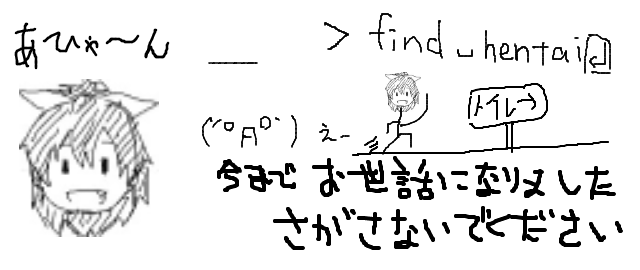 あひゃ〜ん
> find␣hentai↲
(゜Д゜)
えー
トイレ→
今まで お世話になりました
さがさないでください